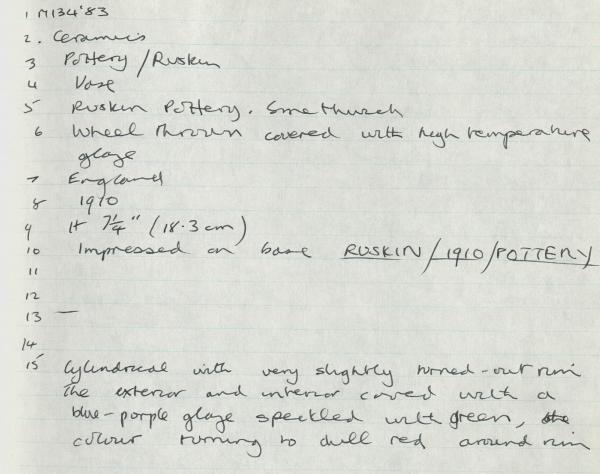 1 M134'83
2. Ceramics
3 Pottery / Ruskin
4 Vase
5 Ruskin Pottery. Smethwick
6 Wheel thrown covered with high temperature
glaze
7 England
8 1910
9 H 7¼" (18.3 cm)
10 Impressed on base RUSKIN / 1910 / POTTERY
11
12
13 —
14
15 Cylindrical with very slightly turned-out rim
The exterior and interior covered with a
blue-purple glaze speckled with green, the
colour turning to dull red around rim